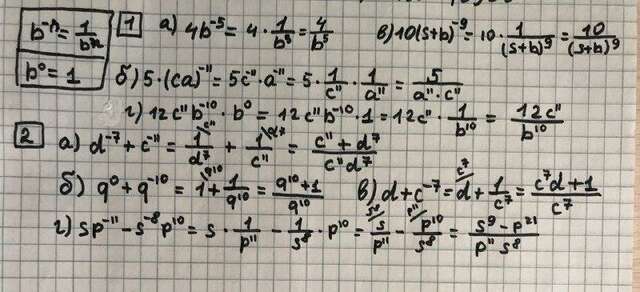 b⁻ⁿ = 1/bⁿ
b⁰ = 1
1 а) 4b⁻⁵ = 4 · 1/b⁵ = 4/b⁵ в) 10(s+b)⁻⁹ = 10 · 1/(s+b)⁹ = 10/(s+b)⁹
б) 5 · (ca)⁻¹¹ = 5c⁻¹¹ · a⁻¹¹ = 5 · 1/c¹¹ · 1/a¹¹ = 5/(a¹¹ · c¹¹)
г) 12c¹¹b⁻¹⁰ · b⁰ = 12c¹¹b⁻¹⁰ · 1 = 12c¹¹ · 1/b¹⁰ = 12c¹¹/b¹⁰
2 а) d⁻⁷ + c⁻¹¹ = 1\c¹¹/d⁷ + 1\d⁷/c¹¹ = (c¹¹ + d⁷)/(c¹¹d⁷)
б) q⁰ + q⁻¹⁰ = 1\q¹⁰ + 1/q¹⁰ = (q¹⁰ + 1)/q¹⁰ в) d + c⁻⁷ = d\c⁷ + 1/c⁷ = (c⁷d + 1)/c⁷
г) sp⁻¹¹ − s⁻⁸p¹⁰ = s · 1/p¹¹ − 1/s⁸ · p¹⁰ = s/p¹¹ − p¹⁰\p¹¹/s⁸ = (s⁹ − p²¹)/(p¹¹s⁸)